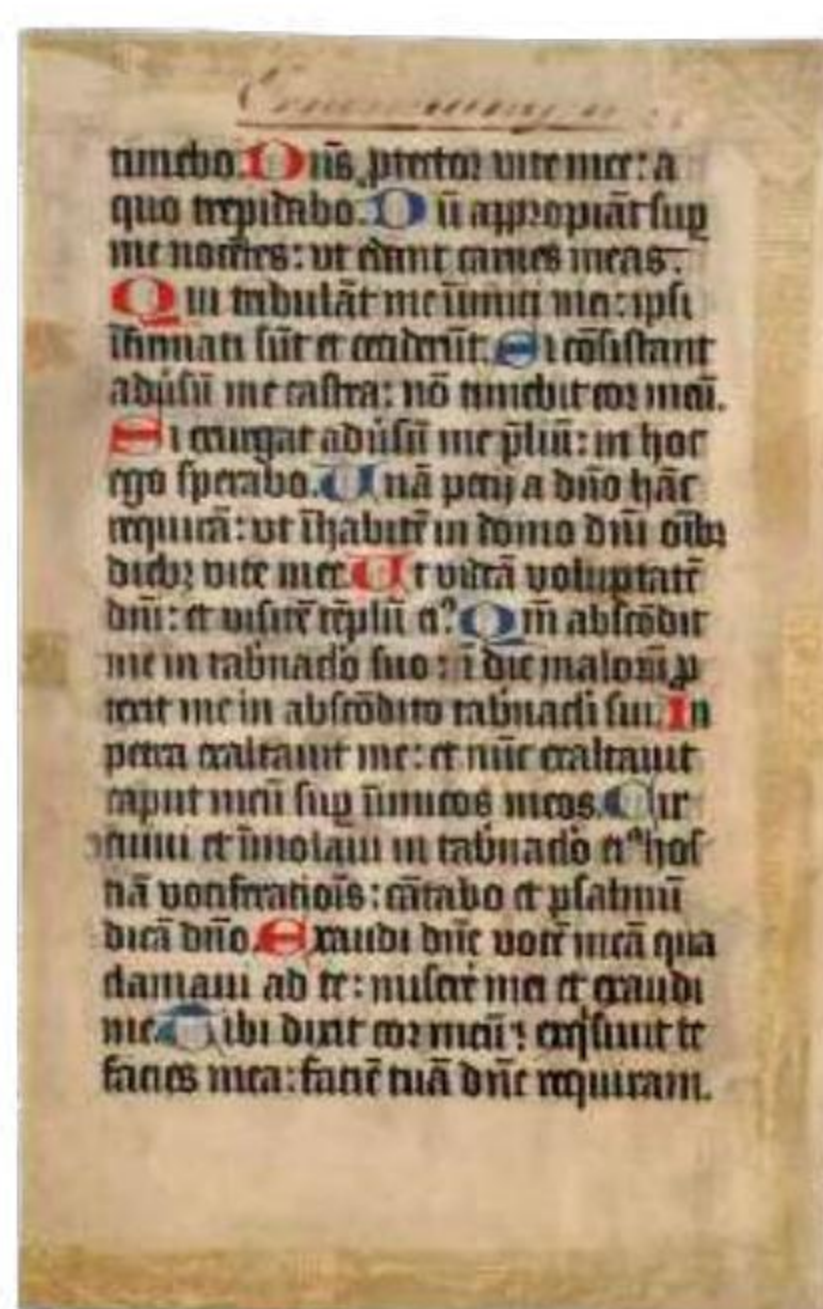 timebo. Dn̄s ꝓtector vite mee: a
quo trepidabo. Dū appropiāt sup̄
me nocētes: ut edant carnes meas.
Qui tribulāt me inimici mei: ipsi
īfirmati sūt et ceciderūt. Si cōsistant
adūsū me castra: nō timebit cor meū.
Si exurgat adūsū me p̄liū: in hoc
ego sperabo. Unā petij a dn̄o hāc
requirā: ut īhabitē in domo dn̄i oībꝫ
diebꝫ vite mee. Ut videā voluptatē
dn̄i: et visitē tēplū eiꝰ. Qm̄ abscōdit
me in tab̄nac̄lo suo: ī die maloꝝ ꝓ
texit me in abscōdito tab̄nac̄li sui. In
petra exaltavit me: et nūc exaltavit
caput meū sup̄ inimicos meos. Cir
cuivi et īmolavi in tab̄nac̄lo eiꝰ hos
tiā vociferatiōis: cātabo et psalmū
dicā dn̄o. Exaudi dn̄e vocē meā qua
clamavi ad te: miserē mei et exaudi
me. Tibi dixit cor meū: exq̄sivit te
facies mea: faciē tuā dn̄e requiram.